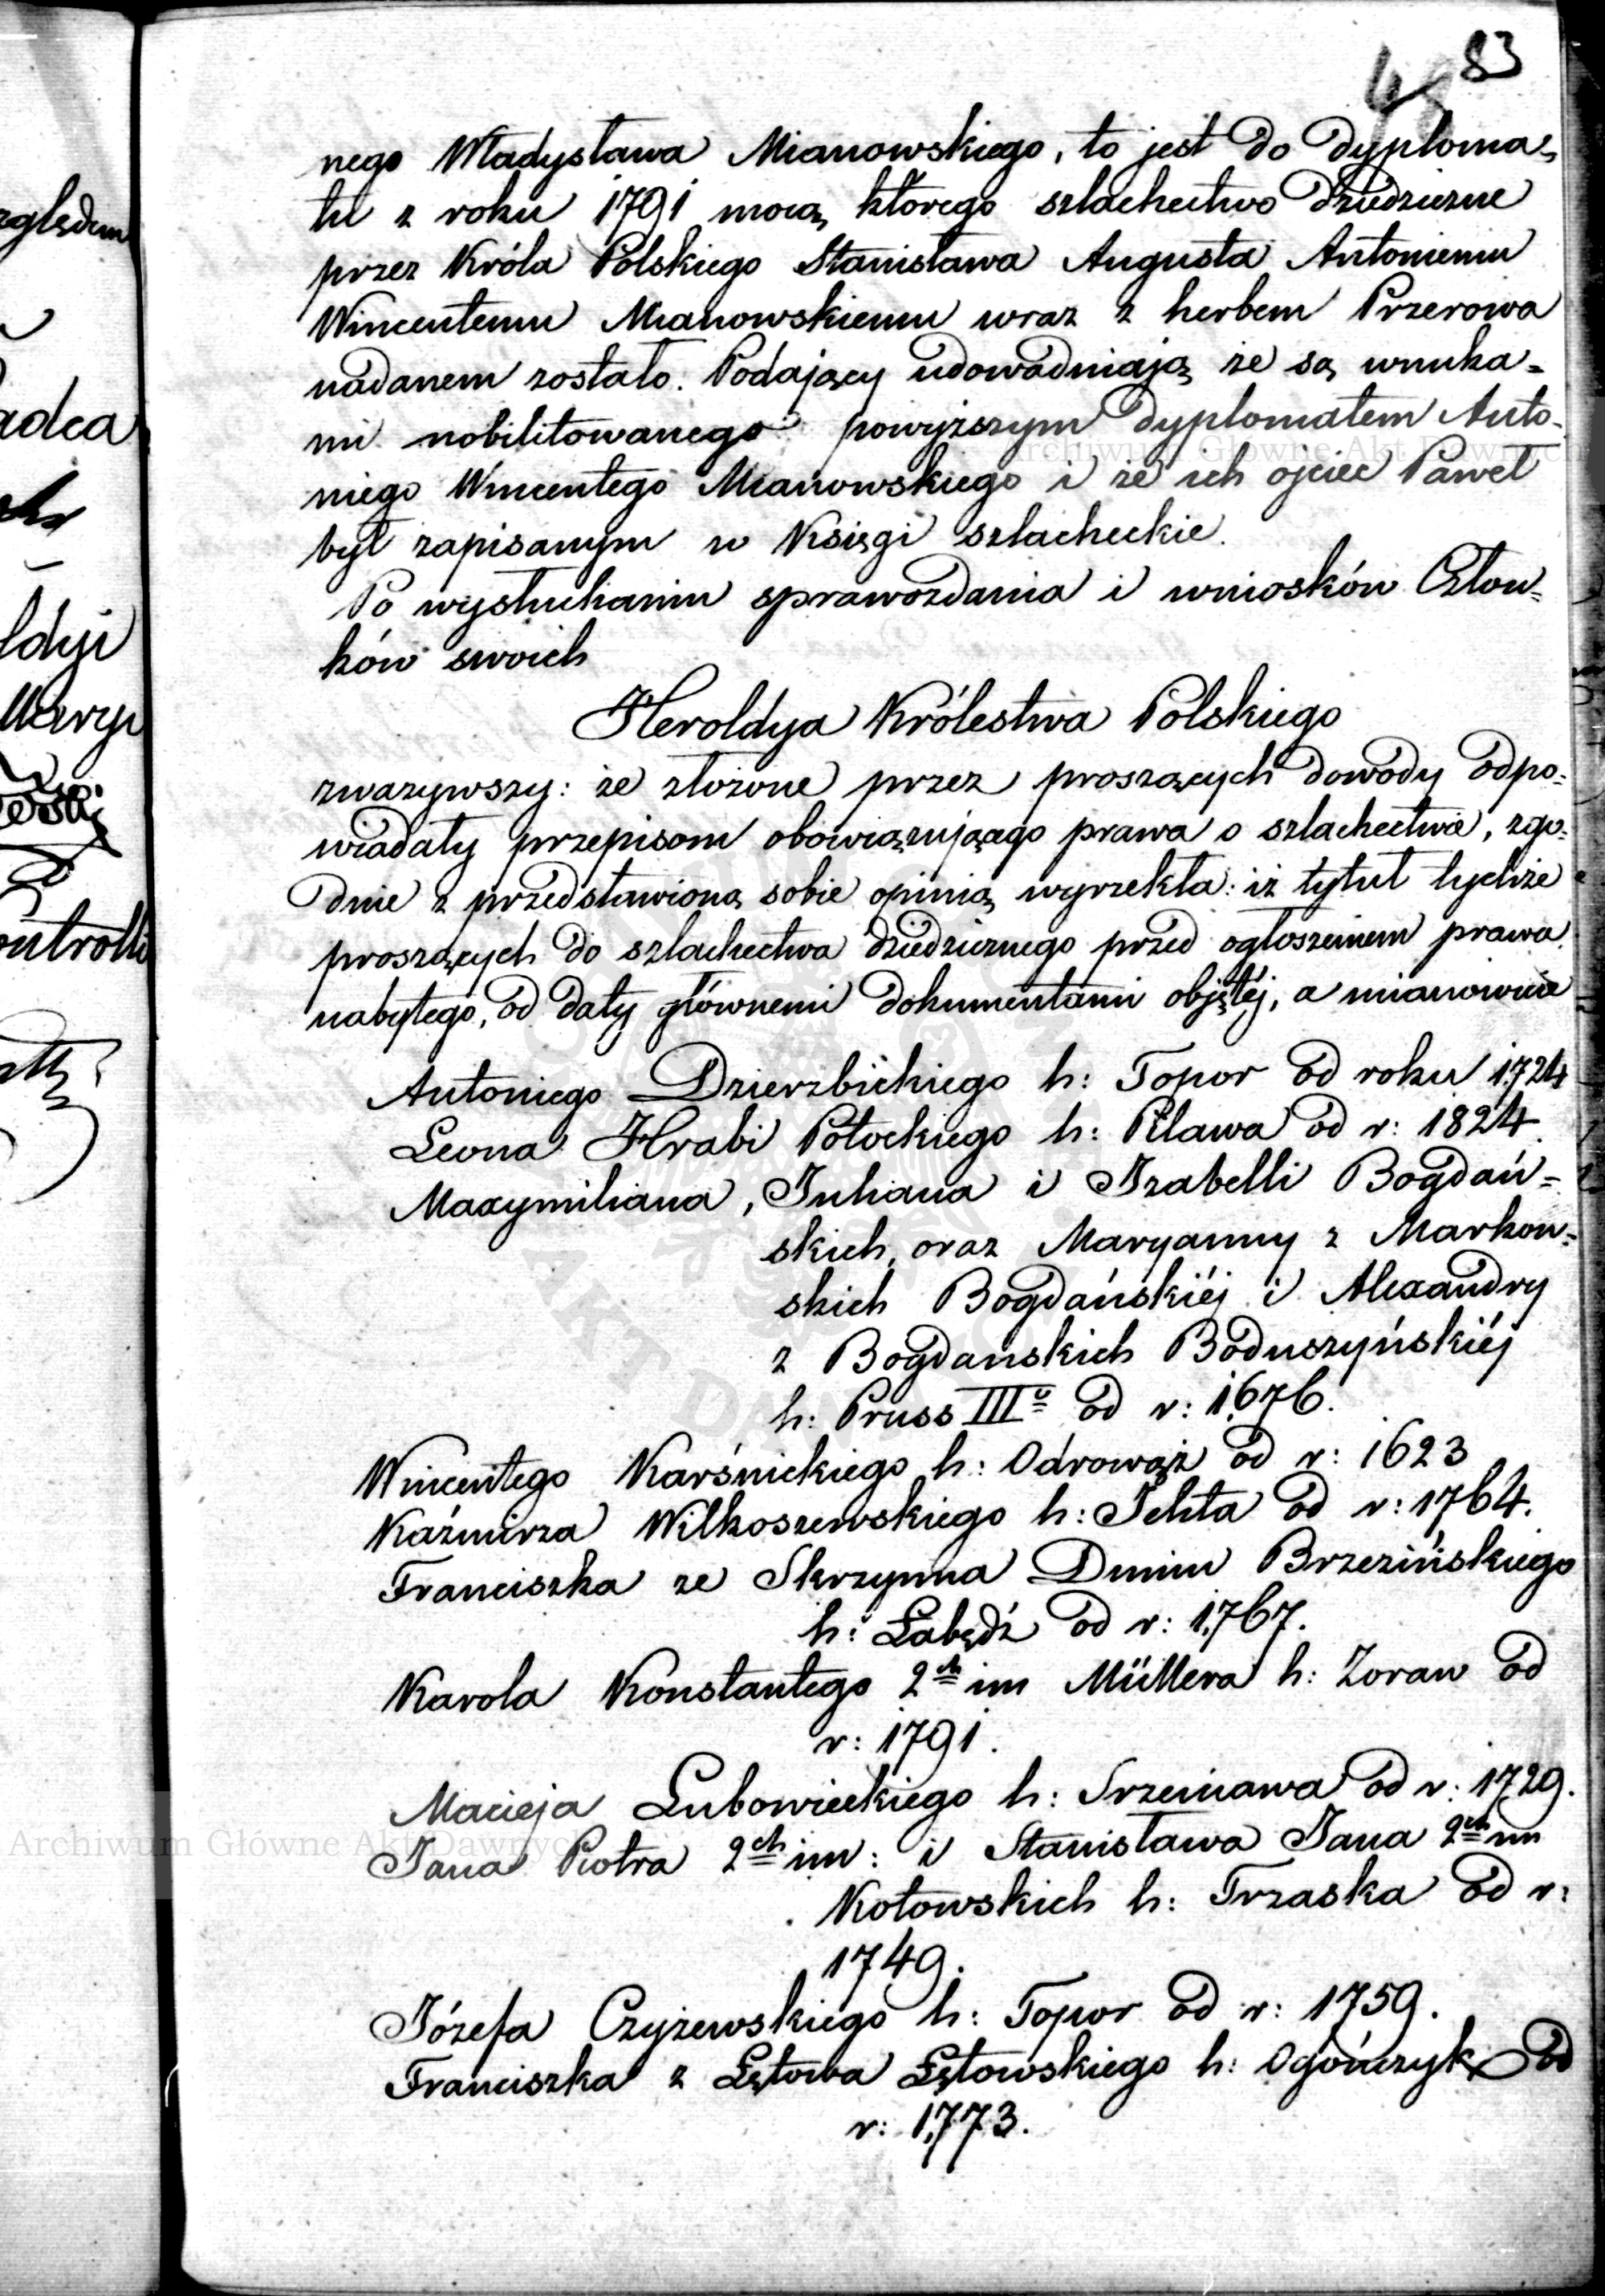 83
48
nego Władysława Mianowskiego, to jest do dyploma-
tu z roku 1791 mocą którego szlachectwo dziedziczne
przez Króla Polskiego Stanisława Augusta Antoniemu
Wincentemu Mianowskiemu wraz z herbem Przerowa
nadanem zostało. Podający udowadniają że są wnuka-
mi nobilitowanego powyższym dyplomatem Anto-
niego Wincentego Mianowskiego i że ich ojciec Paweł
był zapisanym w Księgi szlacheckie.
Po wysłuchaniu sprawozdania i wniosków Człon-
ków swoich
Heroldya Królestwa Polskiego
zważywszy: że złożone przez proszących dowody odpo-
wiadały przepisom obowiązującego prawa o szlachectwie, zgo-
dnie z przedstawioną sobie opinią wyrzekła: iż tytuł tychże
proszących do szlachectwa dziedzicznego przed ogłoszeniem prawa
nabytego, od daty głównemi dokumentami objętéj, a mianowicie
Antoniego Dzierzbickiego h: Topor od roku 1724
Leona Hrabi Potockiego h: Pilawa od r: 1824
Maxymiliana, Juliana i Izabelli Bogdań-
skich, oraz Maryanny z Markow-
skich Bogdańskiéj i Alexandry
z Bogdanskich Boduszyńskiéj
h: Pruss IIIo od r: 1676.
Wincentego Karśnickiego h: Odrowąż od r: 1623
Kaźmirza Wilkoszewskiego h: Jelita od r: 1764.
Franciszka ze Skrzynna Dunin Brzezińskiego
h: Łabędź od r: 1767.
Karola Konstantego 2ch im Müllera h: Zoraw od
r: 1791.
Macieja Lubowieckiego h: Srzeniawa od r: 1729.
Jana Piotra 2ch im: i Stanisława Jana 2ch im
Kotowskich h: Trzaska od r:
1749.
Józefa Czyżewskiego h: Topor od r: 1759.
Franciszka z Łętowa Łętowskiego h: Ogończyk od
r: 1773.
zględem
adca
ldyi
Maryi
ontrolli
Archiwum Główne Akt Dawnych
Archiwum Główne Akt Dawnych
AKT DAWNYCH